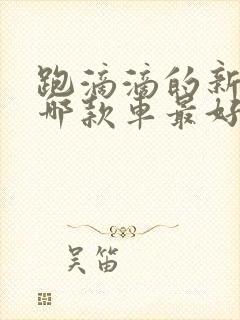 跑滴滴的新
哪款车最好
吴笛